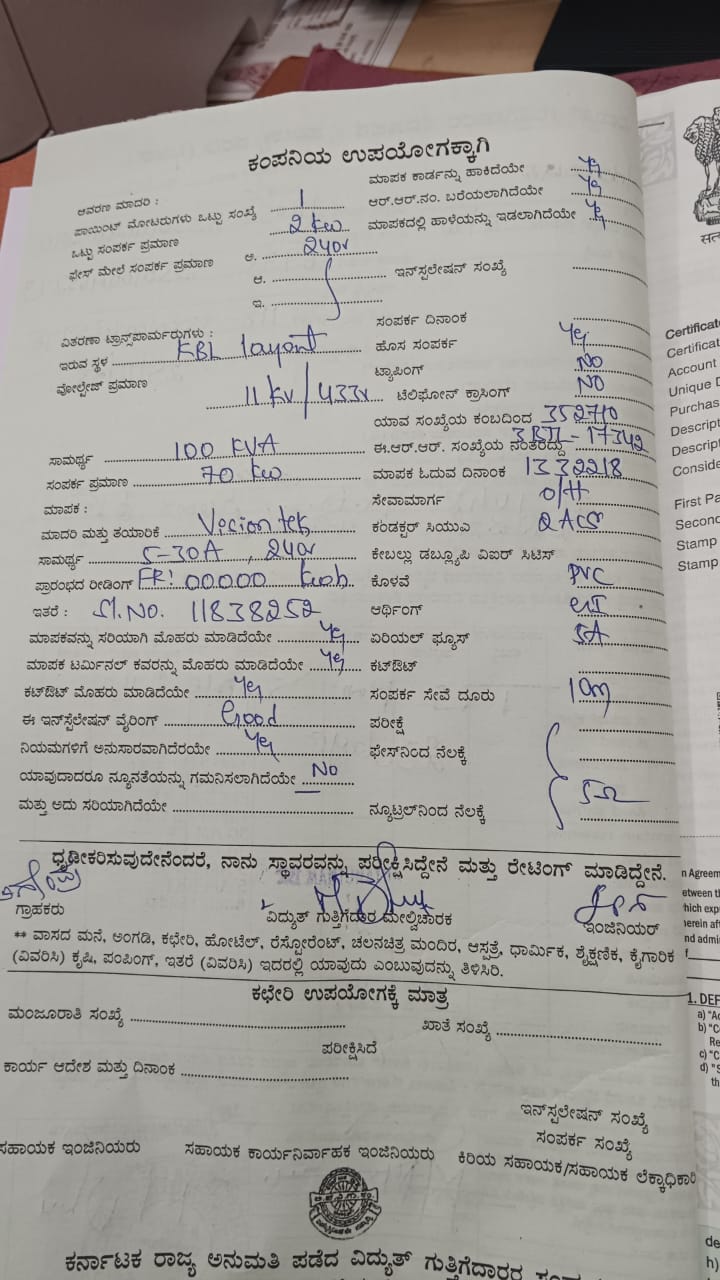 ಕಂಪನಿಯ ಉಪಯೋಗಕ್ಕಾಗಿ
ಆವರಣ ಮಾದರಿ :
ಪಾಯಿಂಟ್ ಮೋಟರುಗಳು ಒಟ್ಟು ಸಂಖ್ಯೆ 1
ಒಟ್ಟು ಸಂಪರ್ಕ ಪ್ರಮಾಣ 2 kw
ಫೇಸ್ ಮೇಲೆ ಸಂಪರ್ಕ ಪ್ರಮಾಣ ಆ. 240v
ಆ.
ಇ.
ವಿತರಣಾ ಟ್ರಾನ್ಸ್‌ಪಾರ್ಮರುಗಳು :
ಇರುವ ಸ್ಥಳ KBL layout
ವೋಲ್ಟೇಜ್ ಪ್ರಮಾಣ 11 kv / 433v
ಸಾಮರ್ಥ್ಯ 100 KVA
ಸಂಪರ್ಕ ಪ್ರಮಾಣ 70 kw
ಮಾಪಕ :
ಮಾದರಿ ಮತ್ತು ತಯಾರಿಕೆ Vision tek
ಸಾಮರ್ಥ್ಯ 5-30A, 240v
ಪ್ರಾರಂಭದ ರೀಡಿಂಗ್ FR! 00000 kwh
ಇತರೆ : Sl.NO. 11838252
ಮಾಪಕವನ್ನು ಸರಿಯಾಗಿ ಮೊಹರು ಮಾಡಿದೆಯೇ Yes
ಮಾಪಕ ಟರ್ಮಿನಲ್ ಕವರನ್ನು ಮೊಹರು ಮಾಡಿದೆಯೇ Yes
ಕಟ್‌ಔಟ್ ಮೊಹರು ಮಾಡಿದೆಯೇ Yes
ಈ ಇನ್‌ಸ್ಟಲೇಷನ್ ವೈರಿಂಗ್ Good
ನಿಯಮಗಳಿಗೆ ಅನುಸಾರವಾಗಿದೆರಯೇ Yes
ಯಾವುದಾದರೂ ನ್ಯೂನತೆಯನ್ನು ಗಮನಿಸಲಾಗಿದೆಯೇ No
ಮತ್ತು ಅದು ಸರಿಯಾಗಿದೆಯೇ
ಮಾಪಕ ಕಾರ್ಡನ್ನು ಹಾಕಿದೆಯೇ Yes
ಆರ್.ಆರ್.ನಂ. ಬರೆಯಲಾಗಿದೆಯೇ Yes
ಮಾಪಕದಲ್ಲಿ ಹಾಳೆಯನ್ನು ಇಡಲಾಗಿದೆಯೇ Yes
ಇನ್‌ಸ್ಪಲೇಷನ್ ಸಂಖ್ಯೆ
ಸಂಪರ್ಕ ದಿನಾಂಕ
ಹೊಸ ಸಂಪರ್ಕ Yes
ಟ್ಯಾಪಿಂಗ್ NO
ಟೆಲಿಫೋನ್ ಕ್ರಾಸಿಂಗ್ NO
ಯಾವ ಸಂಖ್ಯೆಯ ಕಂಬದಿಂದ 352710
ಈ.ಆರ್.ಆರ್. ಸಂಖ್ಯೆಯ ನಂತರದ್ದು
ಮಾಪಕ ಓದುವ ದಿನಾಂಕ 1332218
ಸೇವಾಮಾರ್ಗ O/H
ಕಂಡಕ್ಟರ್ ಸಿಯುವಿ
ಕೇಬಲ್ಲು ಡಬ್ಲ್ಯೂಪಿ ವಿಐರ್ ಸಿಟಿಸ್
ಕೊಳವೆ PVC
ಆರ್ಥಿಂಗ್
ಏರಿಯಲ್ ಫ್ಯೂಸ್ 5A
ಕಟ್‌ಔಟ್
ಸಂಪರ್ಕ ಸೇವೆ ದೂರು 10m
ಪರೀಕ್ಷೆ
ಫೇಸ್‌ನಿಂದ ನೆಲಕ್ಕೆ
5Ω
ನ್ಯೂಟ್ರಲ್‌ನಿಂದ ನೆಲಕ್ಕೆ
ಧೃಢೀಕರಿಸುವುದೇನೆಂದರೆ, ನಾನು ಸ್ಥಾವರವನ್ನು ಪರೀಕ್ಷಿಸಿದ್ದೇನೆ ಮತ್ತು ರೇಟಿಂಗ್ ಮಾಡಿದ್ದೇನೆ.
ಗ್ರಾಹಕರು ವಿದ್ಯುತ್ ಗುತ್ತಿಗೆದಾರ ಮೇಲ್ವಿಚಾರಕ ಇಂಜಿನಿಯರ್
** ವಾಸದ ಮನೆ, ಅಂಗಡಿ, ಕಛೇರಿ, ಹೋಟೆಲ್, ರೆಸ್ಟೋರೆಂಟ್, ಚಲನಚಿತ್ರ ಮಂದಿರ, ಆಸ್ಪತ್ರೆ, ಧಾರ್ಮಿಕ, ಶೈಕ್ಷಣಿಕ, ಕೈಗಾರಿಕ
(ವಿವರಿಸಿ) ಕೃಷಿ, ಪಂಪಿಂಗ್, ಇತರೆ (ವಿವರಿಸಿ) ಇದರಲ್ಲಿ ಯಾವುದು ಎಂಬುವುದನ್ನು ತಿಳಿಸಿರಿ.
ಕಛೇರಿ ಉಪಯೋಗಕ್ಕೆ ಮಾತ್ರ
ಮಂಜೂರಾತಿ ಸಂಖ್ಯೆ ಖಾತೆ ಸಂಖ್ಯೆ
ಪರೀಕ್ಷಿಸಿದೆ
ಕಾರ್ಯ ಆದೇಶ ಮತ್ತು ದಿನಾಂಕ
ಇನ್‌ಸ್ಪಲೇಷನ್ ಸಂಖ್ಯೆ
ಸಂಪರ್ಕ ಸಂಖ್ಯೆ
ಸಹಾಯಕ ಇಂಜಿನಿಯರು ಸಹಾಯಕ ಕಾರ್ಯನಿರ್ವಾಹಕ ಇಂಜಿನಿಯರು ಕಿರಿಯ ಸಹಾಯಕ/ಸಹಾಯಕ ಲೆಕ್ಕಾಧಿಕಾರಿ
ಕರ್ನಾಟಕ ರಾಜ್ಯ ಅನುಮತಿ ಪಡೆದ ವಿದ್ಯುತ್ ಗುತ್ತಿಗೆದಾರರ
Certificate
Certificat
Account
Unique D
Purchas
Descript
Descript
Conside
First Pa
Second
Stamp
Stamp
n Agreem
etween th
hich exp
erein aft
nd admi
1. DEF
a) "Ac
b) "C
Re
c) "C
d) "S
th
de
h)